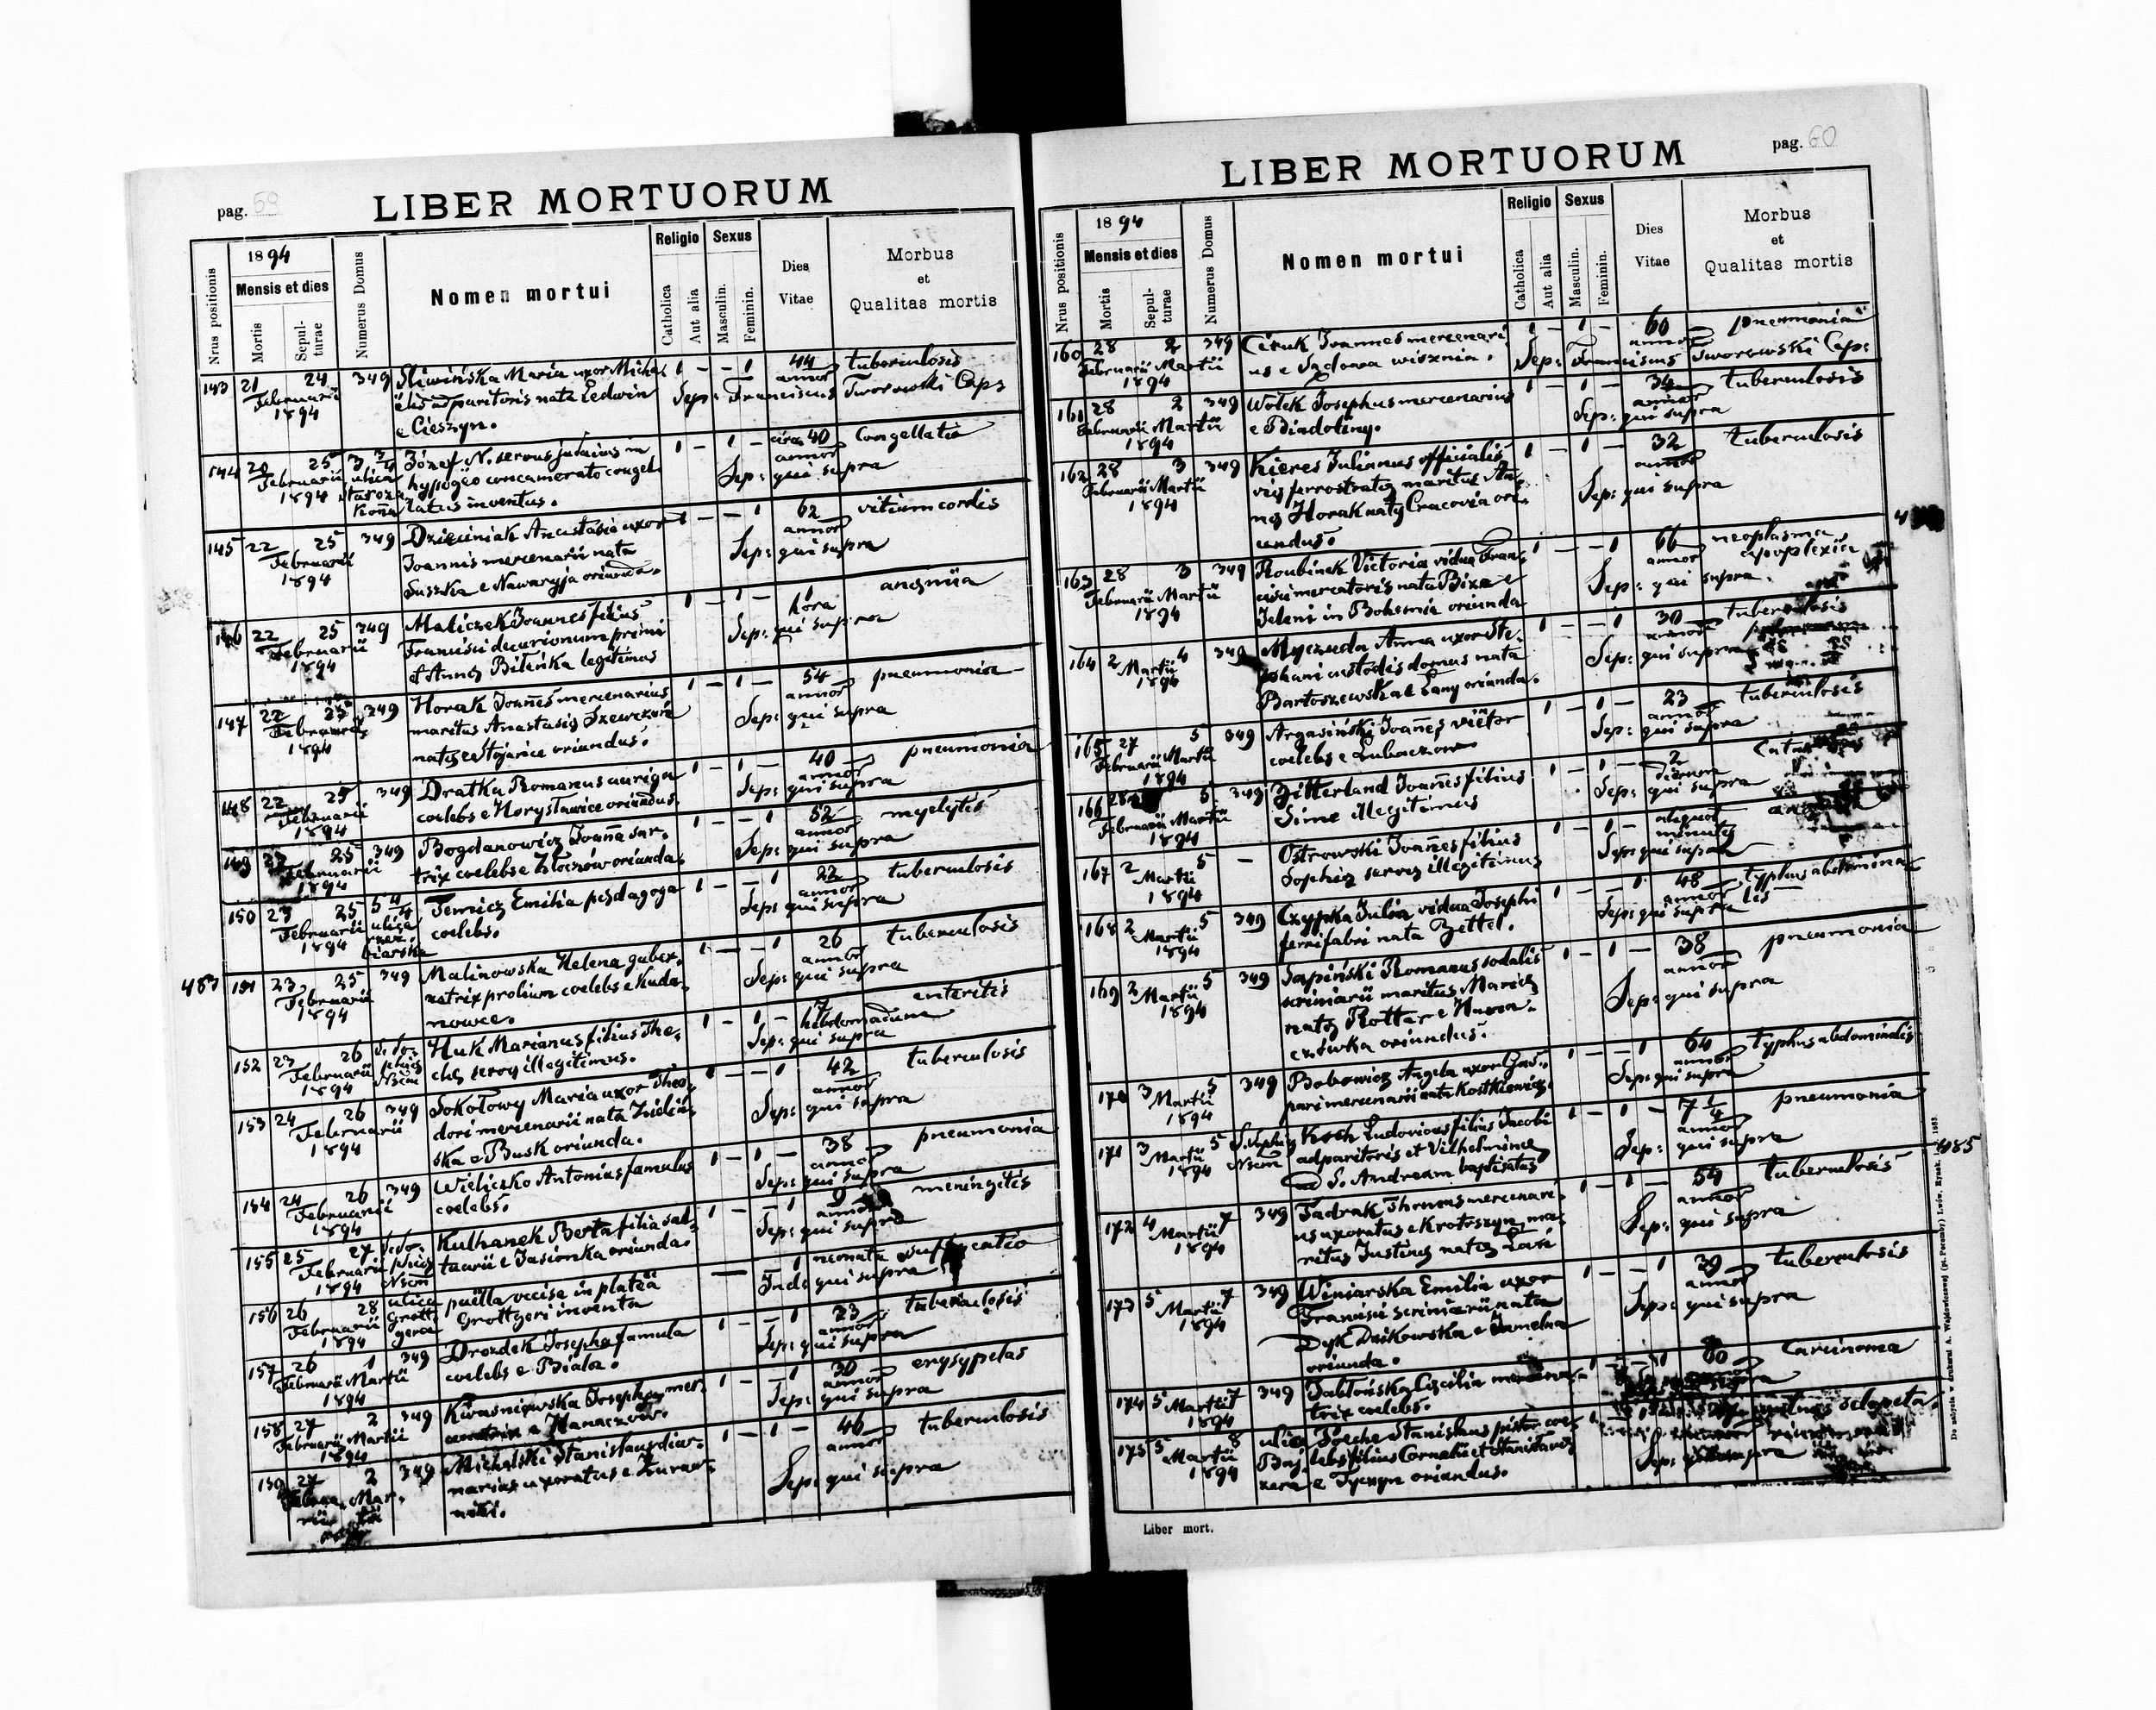 pag. 59
LIBER MORTUORUM
Nrus positionis
1894
Mensis et dies
Mortis
Sepul-
turae
Numerus Domus
Nomen mortui
Religio
Catholica
Aut alia
Sexus
Masculin.
Feminin.
Dies
Vitae
Morbus
et
Qualitas mortis
143 21 24 349 Śliwińska Maria uxor Micha 1 – – 1 44 tuberculosis
Februarii ëlis adparitoris nata Ledwin annor
1894 e Cieszyn. Sep: Franciscus Tworowski Cap:
144 20 25 3 2/4 Józef N. servus judaicus in 1 – 1 – circa 40 Congellatio
Februarii ulica hypogeo concamerato congel annor
1894 latus inventus. Sep: qui supra
145 22 25 349 Dzieciniak Anastasia uxor 1 – – 1 62 vitium cordis
Februarii Joannis mercenarii nata annor
1894 Suszka e Nawaryja oriunda. Sep: qui supra
146 22 25 349 Maliczek Joannes filius 1 – 1 – 1 anęmiia
Februarii Francisci decurionum primi hora
1894 et Annę Bileńka legitimus Sep: qui supra
147 22 25 349 Horak Joannes mercenarius 1 – 1 – 54 pneumonia
Februarii maritus Anastasię Szewczuk annor
1894 natę e Stojańce oriundus. Sep: qui supra
148 22 25 349 Dratka Romanus auriga 1 – 1 – 40 pneumonia
Februarii coelebs e Horysławice oriundus. annor
1894 Sep: qui supra
149 22 25 349 Bogdanowicz Joanna sar- 1 – – 1 52 myelytis
Februarii trix coelebs e Złoczow oriunda. annor
1894 Sep: qui supra
150 23 25 5 4/4 Temicz Emilia pędagoga 1 – – 1 22 tuberculosis
Februarii ulica coelebs. annor
1894 Sep: qui supra
483 151 23 25 349 Malinowska Helena guber- 1 – – 1 26 tuberculosis
Februarii natrix prolium coelebs e Kuda- annor
1894 nowce. Sep: qui supra
152 23 26 Huk Marianus filius The- 1 – 1 – 7 enteritis
Februarii clę servę illegitimus. hebdomadum
1894 Sep: qui supra
153 24 26 349 Sokołowy Maria uxor Theo- 1 – – 1 42 tuberculosis
Februarii dori mercenarii nata annor
1894 ska e Busk oriunda. Sep: qui supra
154 24 26 349 Wieliczko Antonius famulus 1 – 1 – 38 pneumonia
Februarii coelebs. annor
1894 Sep: qui supra
155 25 27 Kulhanek Berta filia sal- 1 – – 1 9 meningitis
Februarii tuarii e Jasionka oriunda. annor
1894 Sep: qui supra
156 26 28 ulica puella occisa in plateä — – 1 neonata suffocatio
Februarii Grott- Grottgeri inventa
1894 gera Inde qui supra
157 26 1 349 Drozdek Josepha famula 1 – – 1 23 tuberculosis
Februarii Martii coelebs e Biała. annor
1894 Sep: qui supra
158 27 2 349 Kwasniowska Josepha mer- 1 – – 1 30 erysypelas
Februarii Martii e Hanaczow. annor
1894 Sep: qui supra
159 27 2 349 Michalski Stanislaus diur- 1 – 1 – 46 tuberculosis
narius uxoratus e Żuraw- annor
niki. Sep: qui supra
pag. 60
LIBER MORTUORUM
Nrus positionis
1894
Mensis et dies
Mortis
Sepul-
turae
Numerus Domus
Nomen mortui
Religio
Catholica
Aut alia
Sexus
Masculin.
Feminin.
Dies
Vitae
Morbus
et
Qualitas mortis
160 28 2 349 Ciruk Joannes mercenari 1 – 1 – 60 pneumonia
Februarii Martii us e Sądowa wisznia. annor
1894 Sep: Franciscus Tworowski Cap:
161 28 2 349 Wołek Josephus mercenarius 1 – 1 – 34 tuberculosis
Februarii Martii e annor
1894 Sep: qui supra
162 28 3 349 Kieres Julianus officialis 1 – 1 – 32 tuberculosis
Februarii Martii vię ferrostratę maritus An- annor
1894 nę Horak natę Cracovia ori- Sep: qui supra
undus.
163 28 3 349 Roubinek Victoria vidua Fran- 1 – – 1 66 neoplasma
Februarii Martii cisci mercatoris nata Bixa e annor apoplexia
1894 Jeleni in Bohemia oriunda Sep: qui supra.
164 2 4 349 Myczuda Anna uxor Ste- 1 – – 1 30 tuberculosis
Martii phani custodis domus nata annor
1894 Bartoszewska e Łany oriunda. Sep: qui supra
165 27 5 349 Argasiński Joannes viëtor 1 – 1 – 23 tuberculosis
Februarii Martii coelebs e Lubaczow annor
1894 Sep: qui supra
166 28 5 349 Zitterland Joannes filius 1 – 1 – 2
Februarii Martii Sime illegitimus dierum
1894 Sep: qui supra
167 2 5 — Ostrowski Joannes filius 1 – 1 – aliquot
Martii Sophię servę illegitimus minutę
1894 Sep: qui supra
168 2 5 349 Czypka Julia vidua Josephi 1 – – 1 48 typhus abdomina
Martii ferrifabri nata Zettel. annor lis
1894 Sep: qui supra
169 2 5 349 Sapiński Romanus sodalis 1 – 1 – 38 pneumonia
Martii scriniarii maritus Marię annor
1894 natę Rottar e
oriundus. Sep: qui supra
170 3 5 349 Bobowicz Angela uxor Gas- 1 – – 1 64 typhus abdominalis
Martii pari mercenarii nata Kostkiewicz. annor
1894 Sep: qui supra
171 3 5 S. Sophię Koch Ludovicus filius Jacobi 1 – 1 – 7 1/4 pneumonia
Martii Nscm adparitoris et Vilhelminę annor
1894 ad S. Andream baptisatus Sep: qui supra
172 4 7 349 Fadrak Thomas mercenari- 1 – 1 – 54 tuberculosis 485
Martii us uxoratus e Krotoszyn ma- annor
1894 ritus Justinę natę Sep: qui supra
173 5 7 349 Winiarska Emilia uxor 1 – – 1 39 tuberculosis
Martii Francisci scriniarii nata annor
1894 Dyk Dzikowska e Jamelna Sep: qui supra
oriunda.
174 5 7 349 Jabłońska Cęcilia mercena- 1 – – 1 80 Carcinoma
Martii trix coelebs.
1894
175 5 8 ulica Stanislaus pistor coe-
Martii Baj lebs filius Cornelii et Stanislavę
1894 e Tyczyn oriundus. Sep: qui supra
Liber mort.
Do nabycia w drukarni A. Wajdowiczowej (pl. Pocztowy) Lwów, Rynek.